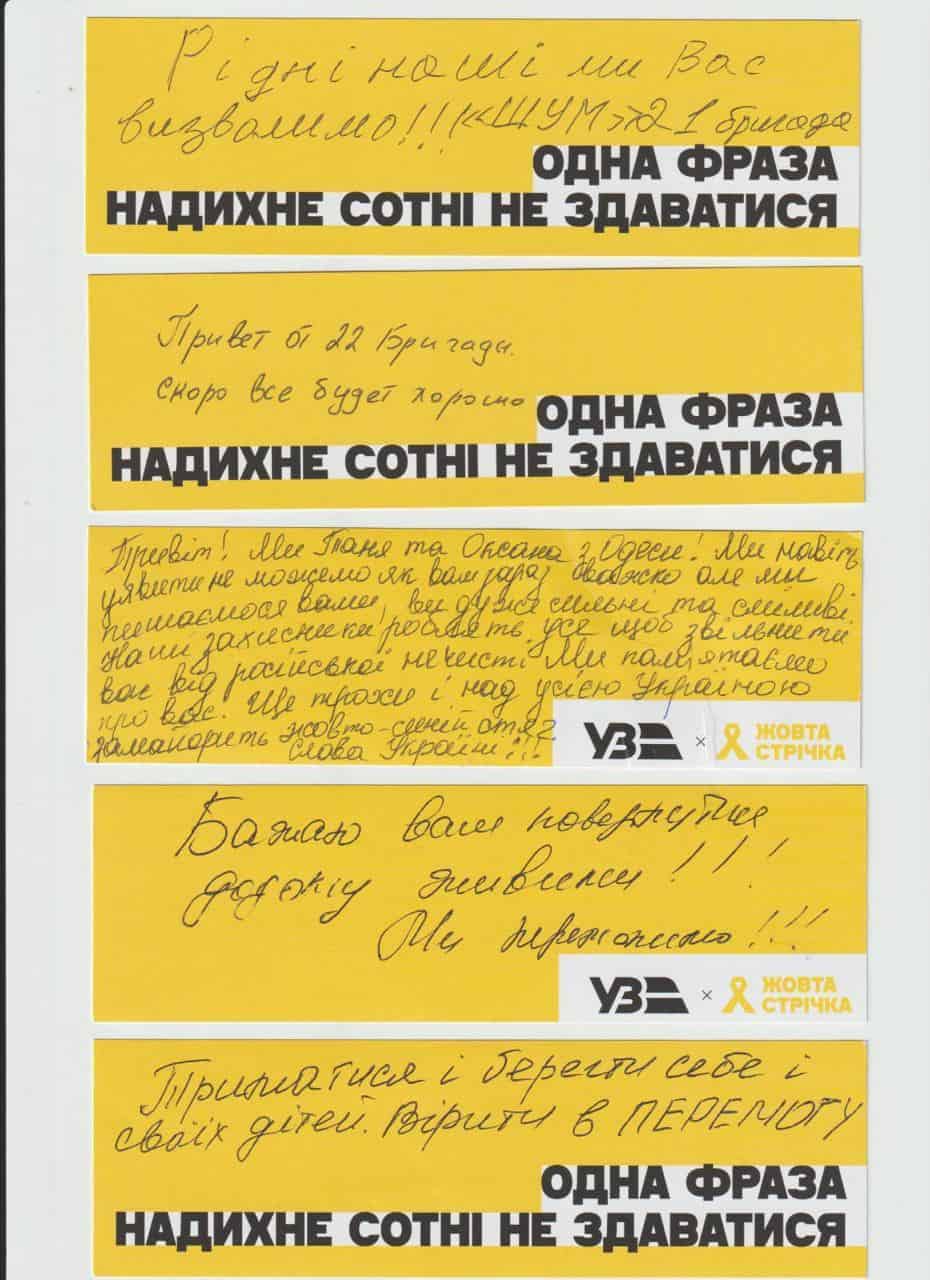 Рідні наші ми Вас
визволимо!!! «ШУМ» 21 бригада
ОДНА ФРАЗА
НАДИХНЕ СОТНІ НЕ ЗДАВАТИСЯ
Привет от 22 Бригады.
скоро все будет хорошо
ОДНА ФРАЗА
НАДИХНЕ СОТНІ НЕ ЗДАВАТИСЯ
Привіт! Ми Таня та Оксана з Одеси! Ми навіть
уявити не можемо як вам зараз важко але мы
пишаємося вами, ви дуже сильні та сміливі.
Наши захисники роблять усе щоб звільнити
вас від російської нечисті Ми памʼятаємо
про вас. Ще трохи і над усією Україною
замайорить жовто-синій стяг
Слава Україні!!!
УЗ × ЖОВТА
СТРІЧКА
Бажаю вам повернутися
додому живими!!!
Ми переможемо!!!
УЗ × ЖОВТА
СТРІЧКА
Триматися і берегти себе і
своїх дітей. Вірити в ПЕРЕМОГУ
ОДНА ФРАЗА
НАДИХНЕ СОТНІ НЕ ЗДАВАТИСЯ